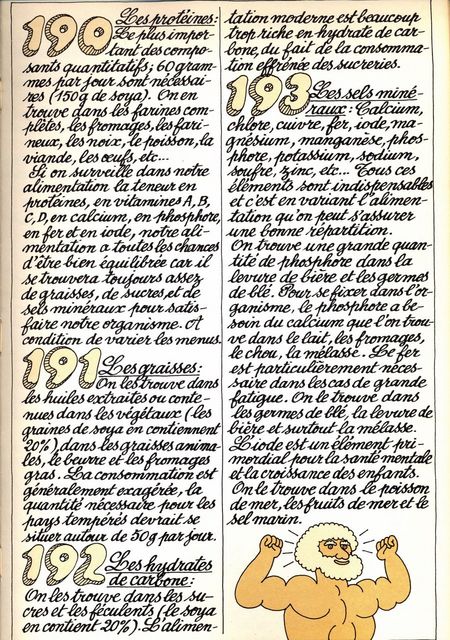 190 Les protéines:
Le plus impor-
tant des compo-
sants quantitatifs; 60 gram-
mes par jour sont nécessai-
res (150g de soya). On en
trouve dans les farines com-
plètes, les fromages, les fari-
neux, les noix, le poisson, la
viande, les œufs, etc...
Si on surveille dans notre
alimentation la teneur en
protéines, en vitamines A, B,
C, D, en calcium, en phosphore,
en fer et en iode, notre ali-
mentation a toutes les chances
d'être bien équilibrée car il
se trouvera toujours assez
de graisses, de sucres, et de
sels minéraux pour satis-
faire notre organisme. A
condition de varier les menus.
191 Les graisses:
On les trouve dans
les huiles extraites ou conte-
nues dans les végétaux (les
graines de soya en contiennent
20%), dans les graisses anima-
les, le beurre et les fromages
gras. La consommation est
généralement exagérée, la
quantité nécessaire pour les
pays tempérés devrait se
situer autour de 50g par jour.
192 Les hydrates
de carbone:
On les trouve dans les su-
cres et les féculents (le soya
en contient 20%). L'alimen-
tation moderne est beaucoup
trop riche en hydrate de car-
bone, du fait de la consomma-
tion effrénée des sucreries.
193 Les sels miné-
raux: Calcium,
chlore, cuivre, fer, iode, ma-
gnésium, manganèse, phos-
phore, potassium, sodium,
soufre, zinc, etc... Tous ces
éléments sont indispensables
et c'est en variant l'alimen-
tation qu'on peut s'assurer
une bonne répartition.
On trouve une grande quan-
tité de phosphore dans la
levure de bière et les germes
de blé. Pour se fixer dans l'or-
ganisme, le phosphore a be-
soin du calcium que l'on trou-
ve dans le lait, les fromages,
le chou, la mélasse. Le fer
est particulièrement néces-
saire dans les cas de grande
fatigue. On le trouve dans
les germes de blé, la levure de
bière et surtout la mélasse.
L'iode est un élément pri-
mordial pour la santé mentale
et la croissance des enfants.
On le trouve dans le poisson
de mer, les fruits de mer et le
sel marin.